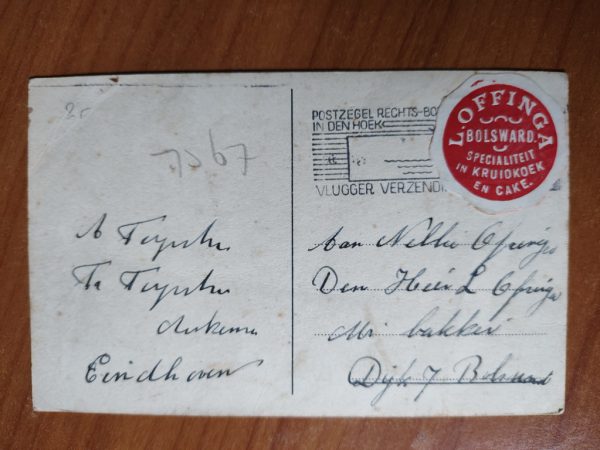 2r
7367
A Feystra
Ta Feystra
Eindhoven
POSTZEGEL RECHTS-BO
IN DEN HOEK
VLUGGER VERZENDI
L. OFFINGA
BOLSWARD.
SPECIALITEIT
IN KRUIDKOEK
EN CAKE.
Aan Nellie Offinga
Den Heer L Offinga
Mr bakker
Dijk 7 Bolsward